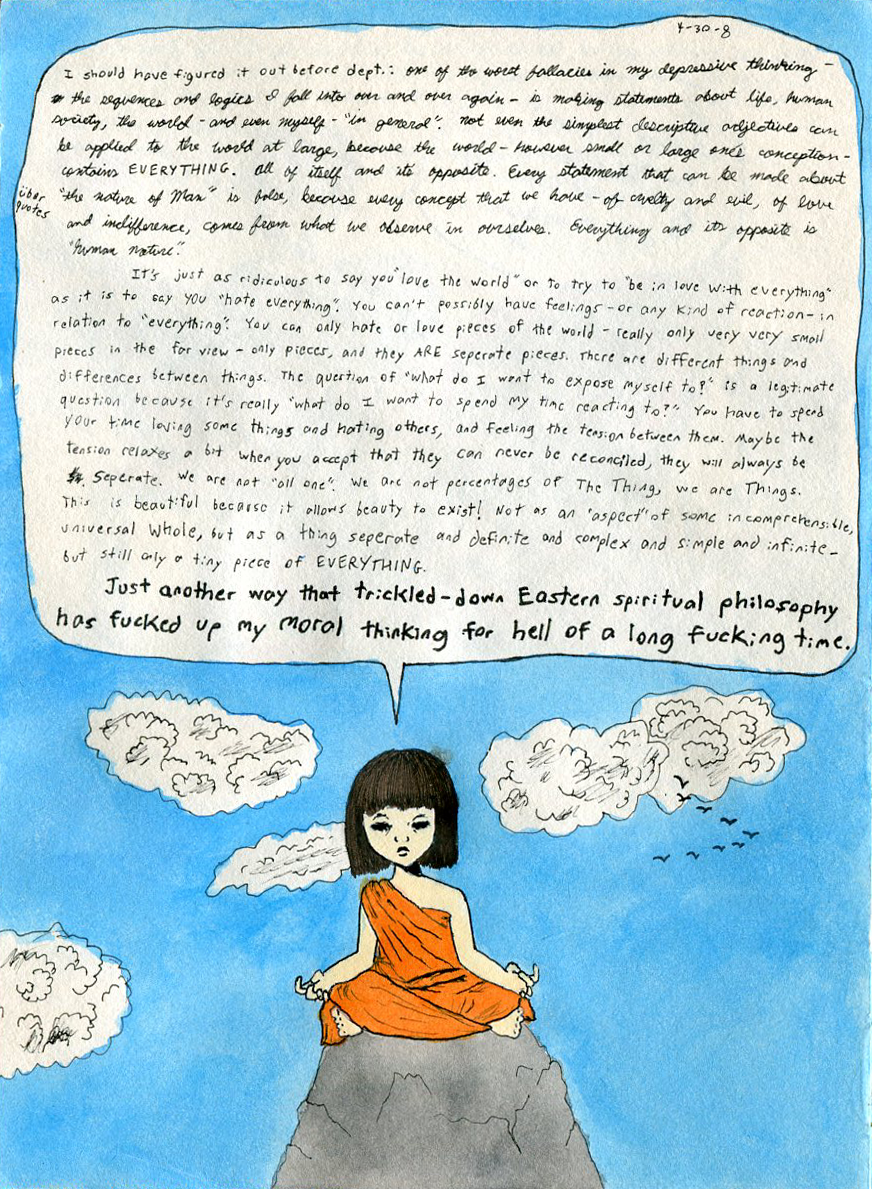 4-30-8
I should have figured it out before dept.: one of the worst fallacies in my depressive thinking -
the sequences and logics I fall into over and over again - is making statements about life, human
society, the world - and even myself - "in general". not even the simplest descriptive adjectives can
be applied to the world at large, because the world - however small or large one's conception -
contains EVERYTHING. all of itself and its opposite. Every statement that can be made about
über quotes
"the nature of Man" is false, because every concept that we have - of cruelty and evil, of love
and indifference, comes from what we observe in ourselves. Everything and its opposite is
"human nature".
It's just as ridiculous to say you "love the world" or to try to "be in love with everything"
as it is to say you "hate everything". You can't possibly have feelings - or any kind of reaction - in
relation to "everything". You can only hate or love pieces of the world - really only very very small
pieces in the far view - only pieces, and they ARE seperate pieces. There are different things and
differences between things. The question of "what do I want to expose myself to?" is a legitimate
question because it's really "what do I want to spend my time reacting to?" You have to spend
your time loving some things and hating others, and feeling the tension between them. Maybe the
tension relaxes a bit when you accept that they can never be reconciled, they will always be
seperate. We are not "all one". We are not percentages of The Thing, we are Things.
This is beautiful because it allows beauty to exist! Not as an "aspect" of some incomprehensible,
universal Whole, but as a thing seperate and definite and complex and simple and infinite -
but still only a tiny piece of EVERYTHING.
Just another way that trickled-down Eastern spiritual philosophy
has fucked up my moral thinking for hell of a long fucking time.